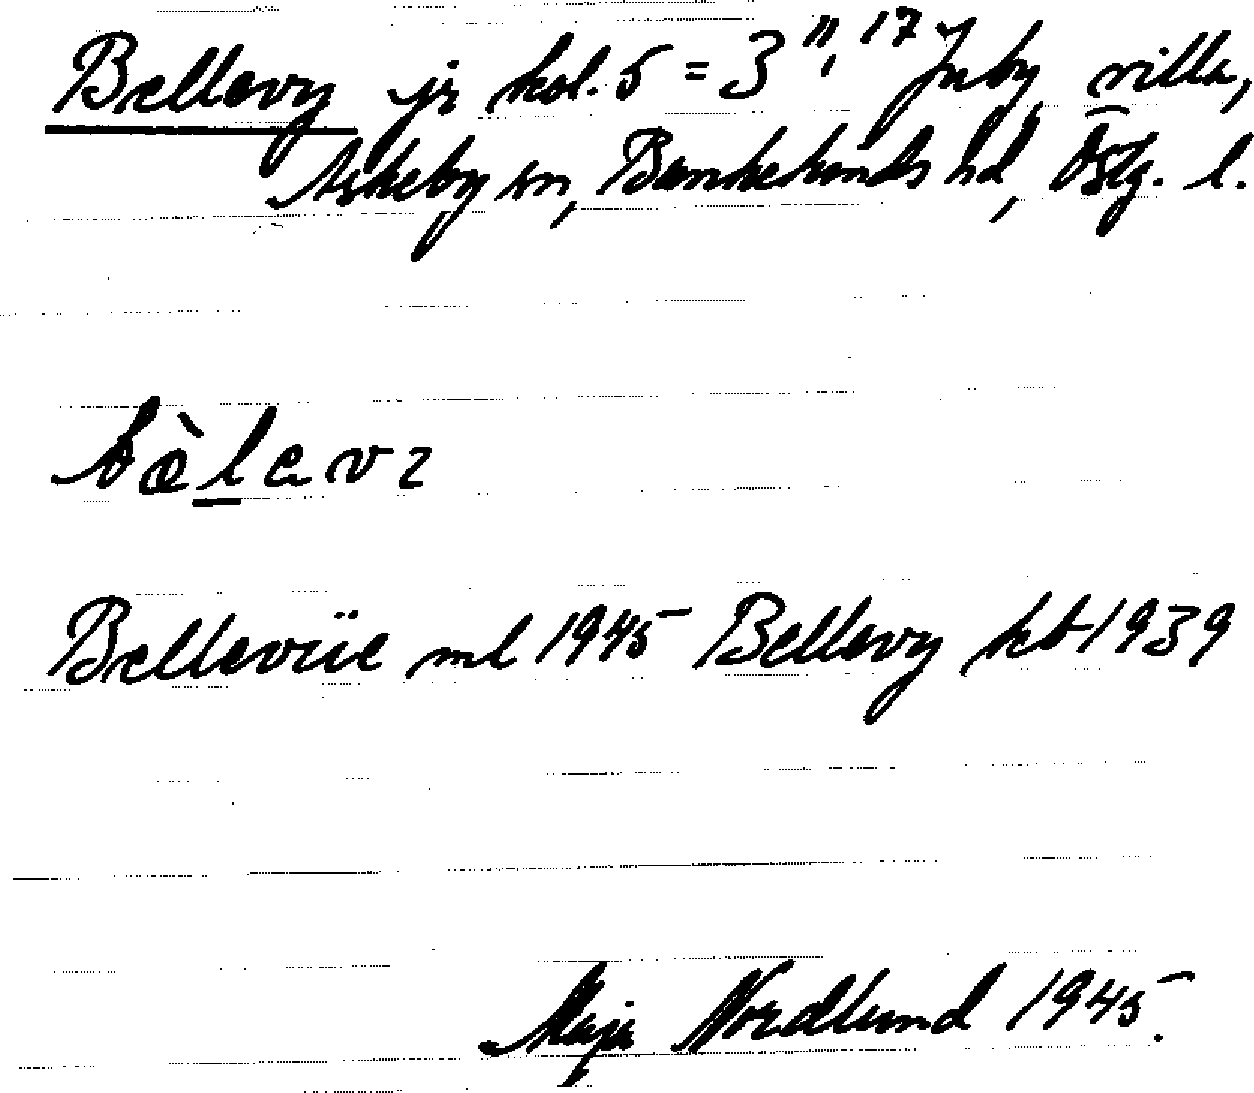 Bellevy jr kol. 5 = 3", 17 Juby villa,
Askeby sn, Bankekinds hd, Östg. l.
bæ̀lavı
Bellevüe ml 1945 Bellevy kb 1939
Maja Nordlund 1945.